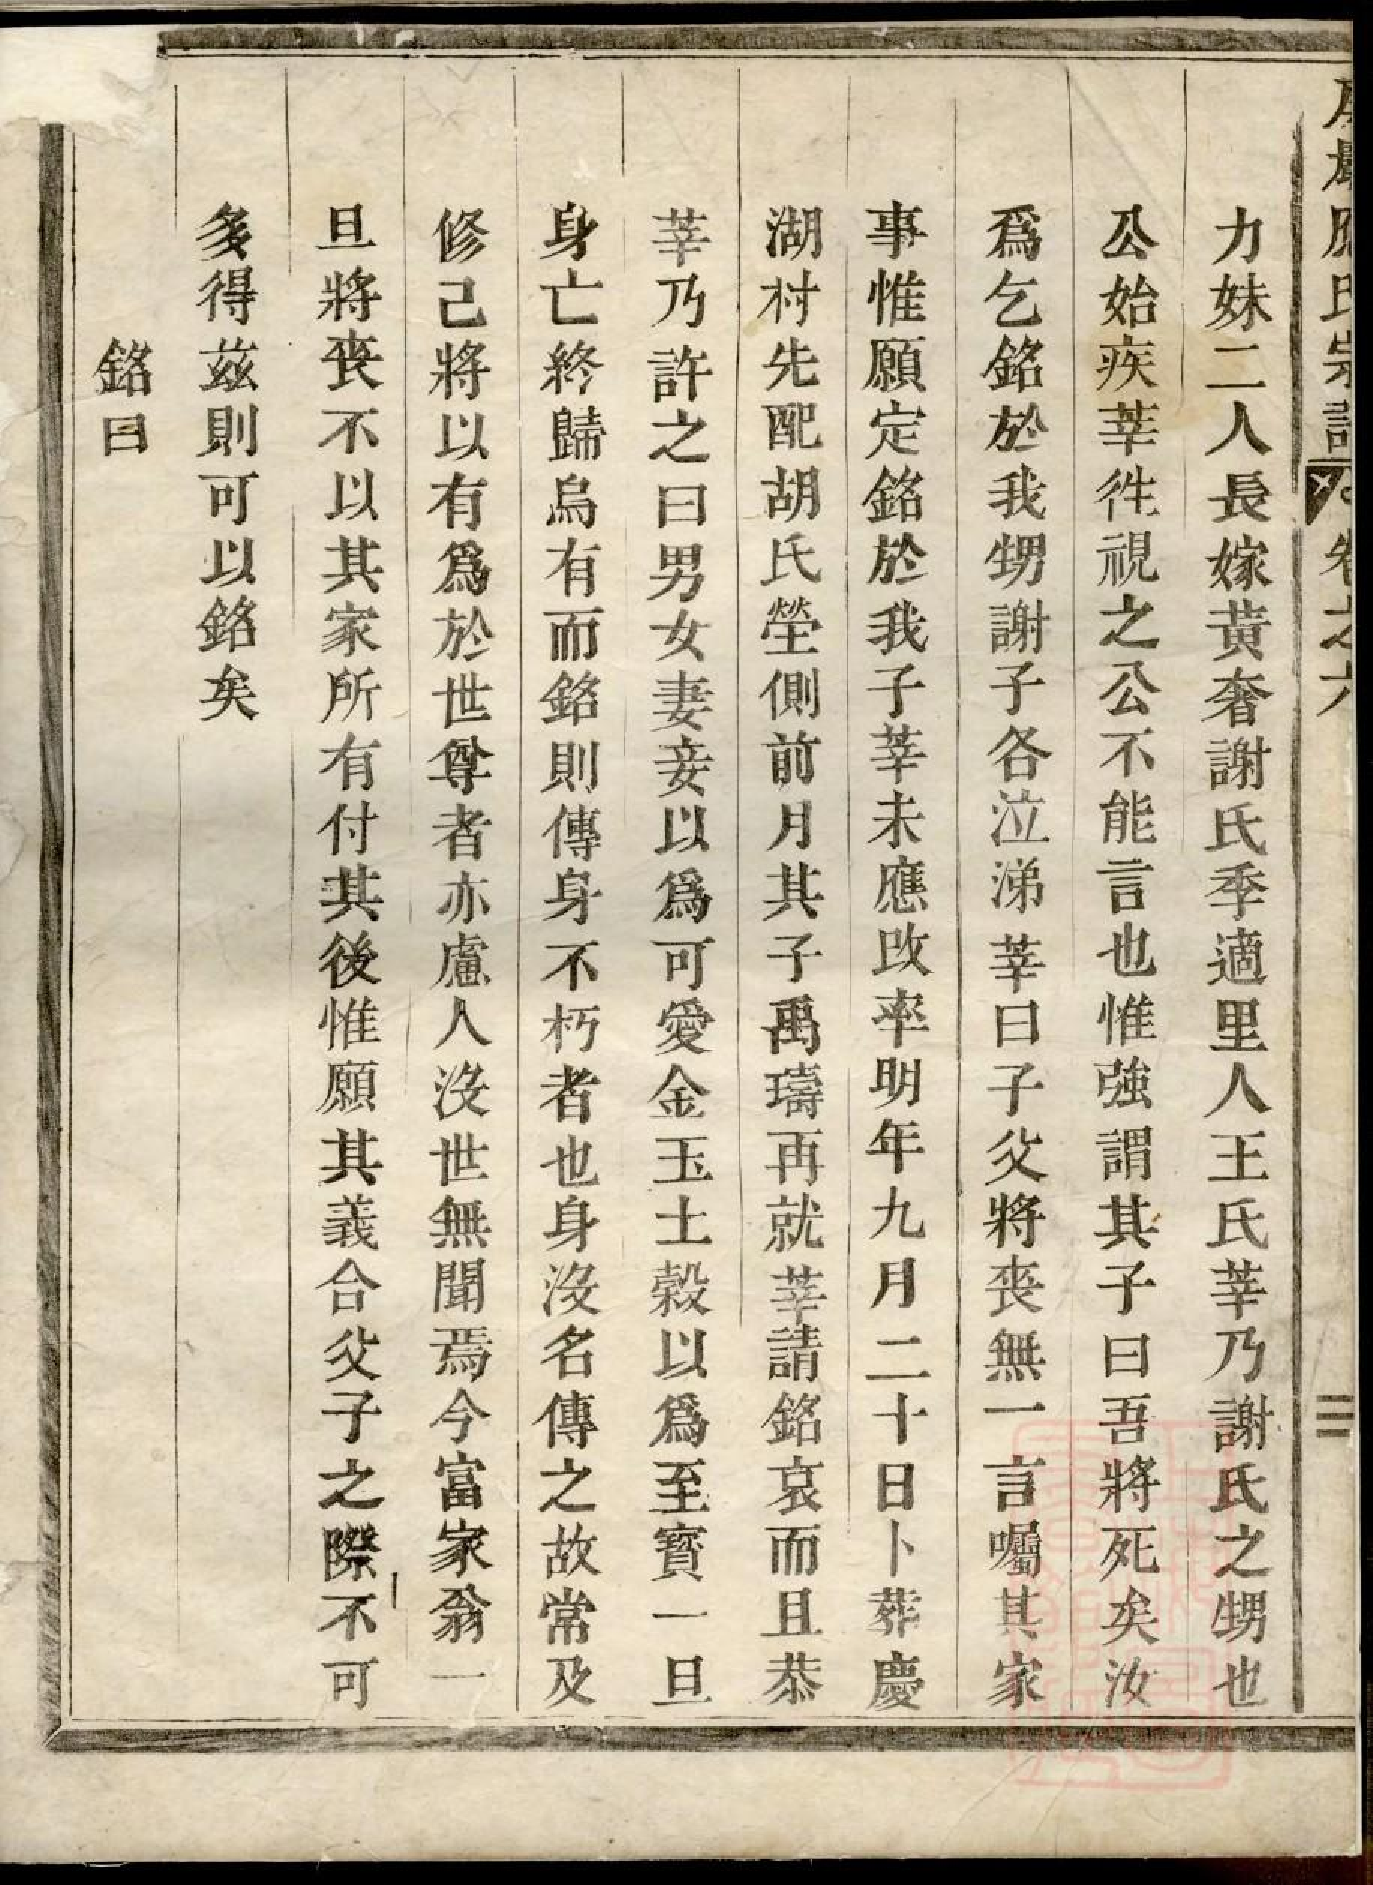 應氏宗譜 卷之六 三
力妹二人長嫁黃奢謝氏季適里人王氏莘乃謝氏之甥也
公始疾莘徃視之公不能言也惟強謂其子曰吾將死矣汝
爲乞銘於我甥謝子各泣涕莘曰子父將丧無一言囑其家
事惟願定銘於我子莘未應攺率明年九月二十日卜葬慶
湖村先配胡氏塋側前月其子禹璹再就莘請銘哀而且恭
莘乃許之曰男女妻妾以爲可愛金玉土穀以爲至寳一旦
身亡終歸烏有而銘則傳身不朽者也身沒名傳之故常及
修己將以有爲於世尊者亦慮人沒世無聞焉今富家翁一
旦將丧不以其家所有付其後惟願其義合父子之際不可
多得兹則可以銘矣
銘曰